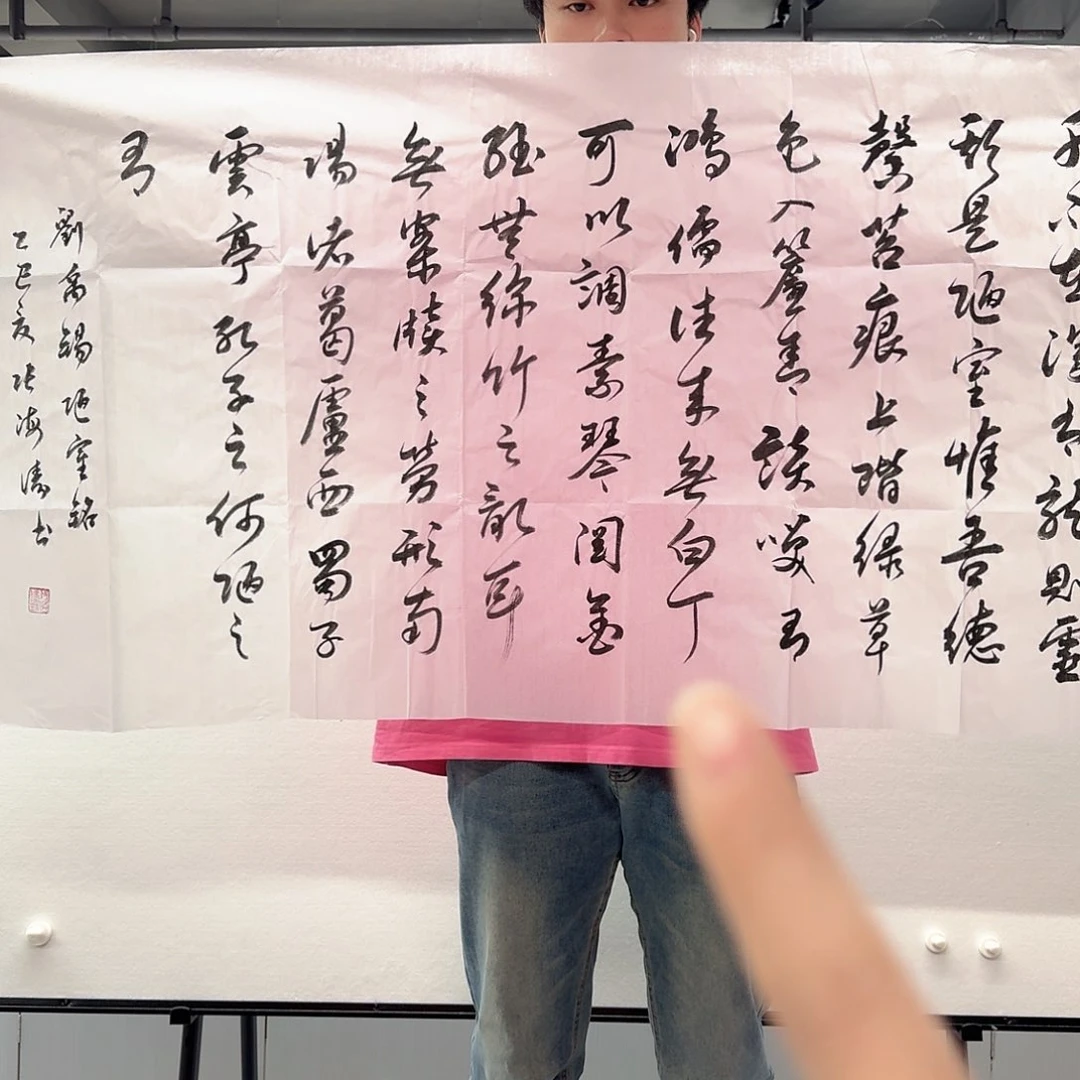 不在深有龍則靈
斯是陋室惟吾德
馨苔痕上階緑草
色入簾青談笑有
鴻儒往來無白丁
可以調素琴閲金
經無絲竹之亂耳
無案牘之勞形南
陽诸葛廬西蜀子
雲亭孔子云何陋之
有
劉禹錫陋室銘
乙巳夏张海濤书